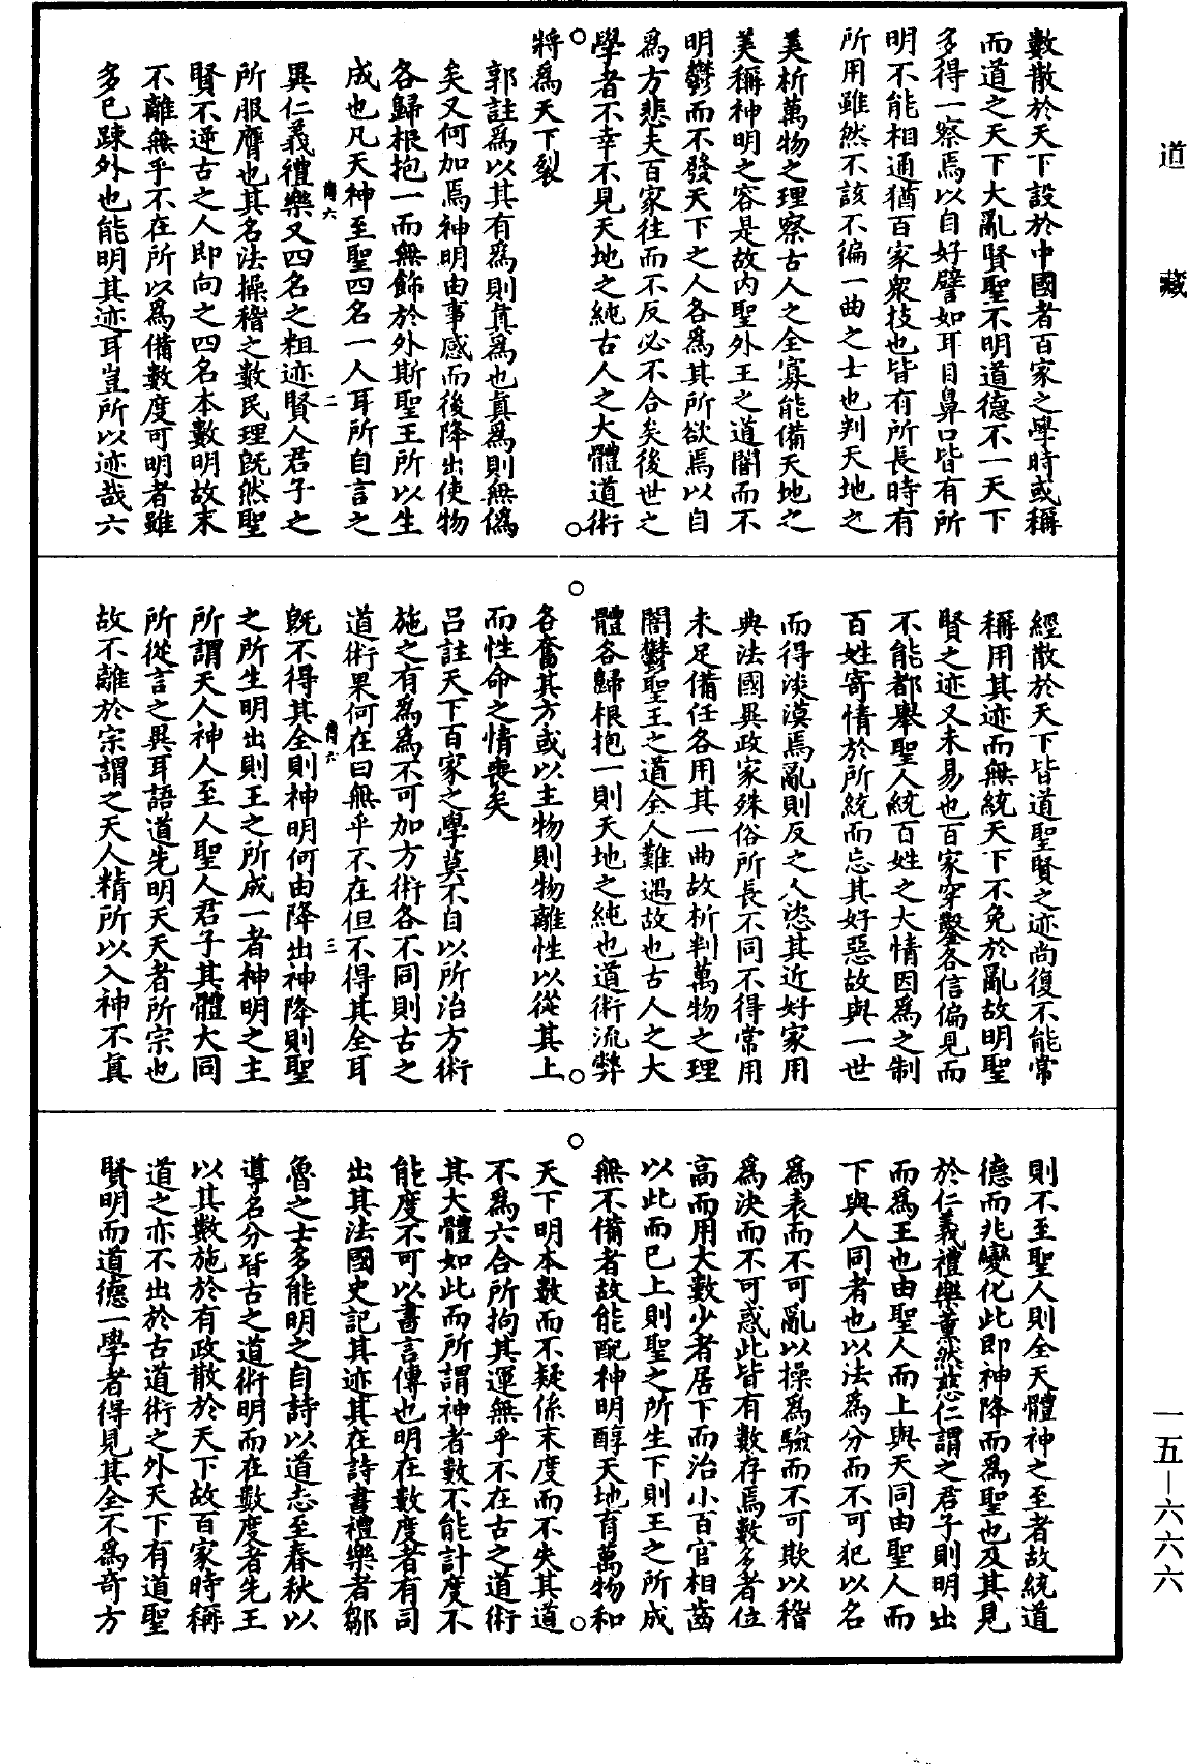 道藏
一五—六六六
數散於天下設於中國者百家之學時或稱
而道之天下大亂賢聖不明道德不一天下
多得一察焉以自好譬如耳目鼻口皆有所
明不能相通猶百家衆技也皆有所長時有
所用雖然不該不徧一曲之士也判天地之
美析萬物之理察古人之全寡能備天地之
美稱神明之容是故內聖外王之道闇而不
明鬱而不發天下之人各為其所欲焉以自
為方悲夫百家往而不反必不合矣後世之
學者不幸不見天地之純古人之大體道術
將為天下裂
郭註為以其有為則真為也真為則無偽
矣又何加焉神明由事感而後降出使物
各歸根抱一而無飾於外斯聖王所以生
成也凡天神至聖四名一人耳所自言之
異仁義禮樂又四名之粗迹賢人君子之
所服膺也其名法操稽之數民理既然聖
賢不逆古之人即向之四名本數明故末
不離無乎不在所以為備數度可明者雖
多已踈外也能明其迹耳豈所以迹哉六
經散於天下皆道聖賢之迹尚復不能常
稱用其迹而無統天下不免於亂故明聖
賢之迹又未易也百家穿鑿各信偏見而
不能都舉聖人統百姓之大情因為之制
百姓寄情於所統而忘其好惡故與一世
而得淡漠焉亂則反之人恣其近好家用
典法國異政家殊俗所長不同不得常用
未足備任各用其一曲故析判萬物之理
闇鬱聖王之道全人難遇故也古人之大
體各歸根抱一則天地之純也道術流弊
各奮其方或以主物則物離性以從其上
而性命之情喪矣
呂註天下百家之學莫不自以所治方術
施之有為為不可加方術各不同則古之
道術果何在曰無乎不在但不得其全耳
既不得其全則神明何由降出神降則聖
之所生明出則王之所成一者神明之主
所謂天人神人至人聖人君子其體大同
所從言之異耳語道先明天天者所宗也
故不離於宗謂之天人精所以入神不真
則不至聖人則全天體神之至者故統道
德而兆變化此即神降而為聖也及其見
於仁義禮樂薰然慈仁謂之君子則明出
而為王也由聖人而上與天同由聖人而
下與人同者也以法為分而不可犯以名
為表而不可亂以操為驗而不可欺以稽
為決而不可惑此皆有數存焉數多者位
高而用大數少者居下而治小百官相齒
以此而已上則聖之所生下則王之所成
無不備者故能配神明醇天地育萬物和
天下明本數而不疑係末度而不失其道
不為六合所拘其運無乎不在古之道術
其大體如此而所謂神者數不能計度不
能度不可以書言傳也明在數度者有司
出其法國史記其迹其在詩書禮樂者鄒
魯之士多能明之自詩以道志至春秋以
導名分皆古之道術明而在數度者先王
以其數施於有政散於天下故百家時稱
道之亦不出於古道術之外天下有道聖
賢明而道德一學者得見其全不為奇方